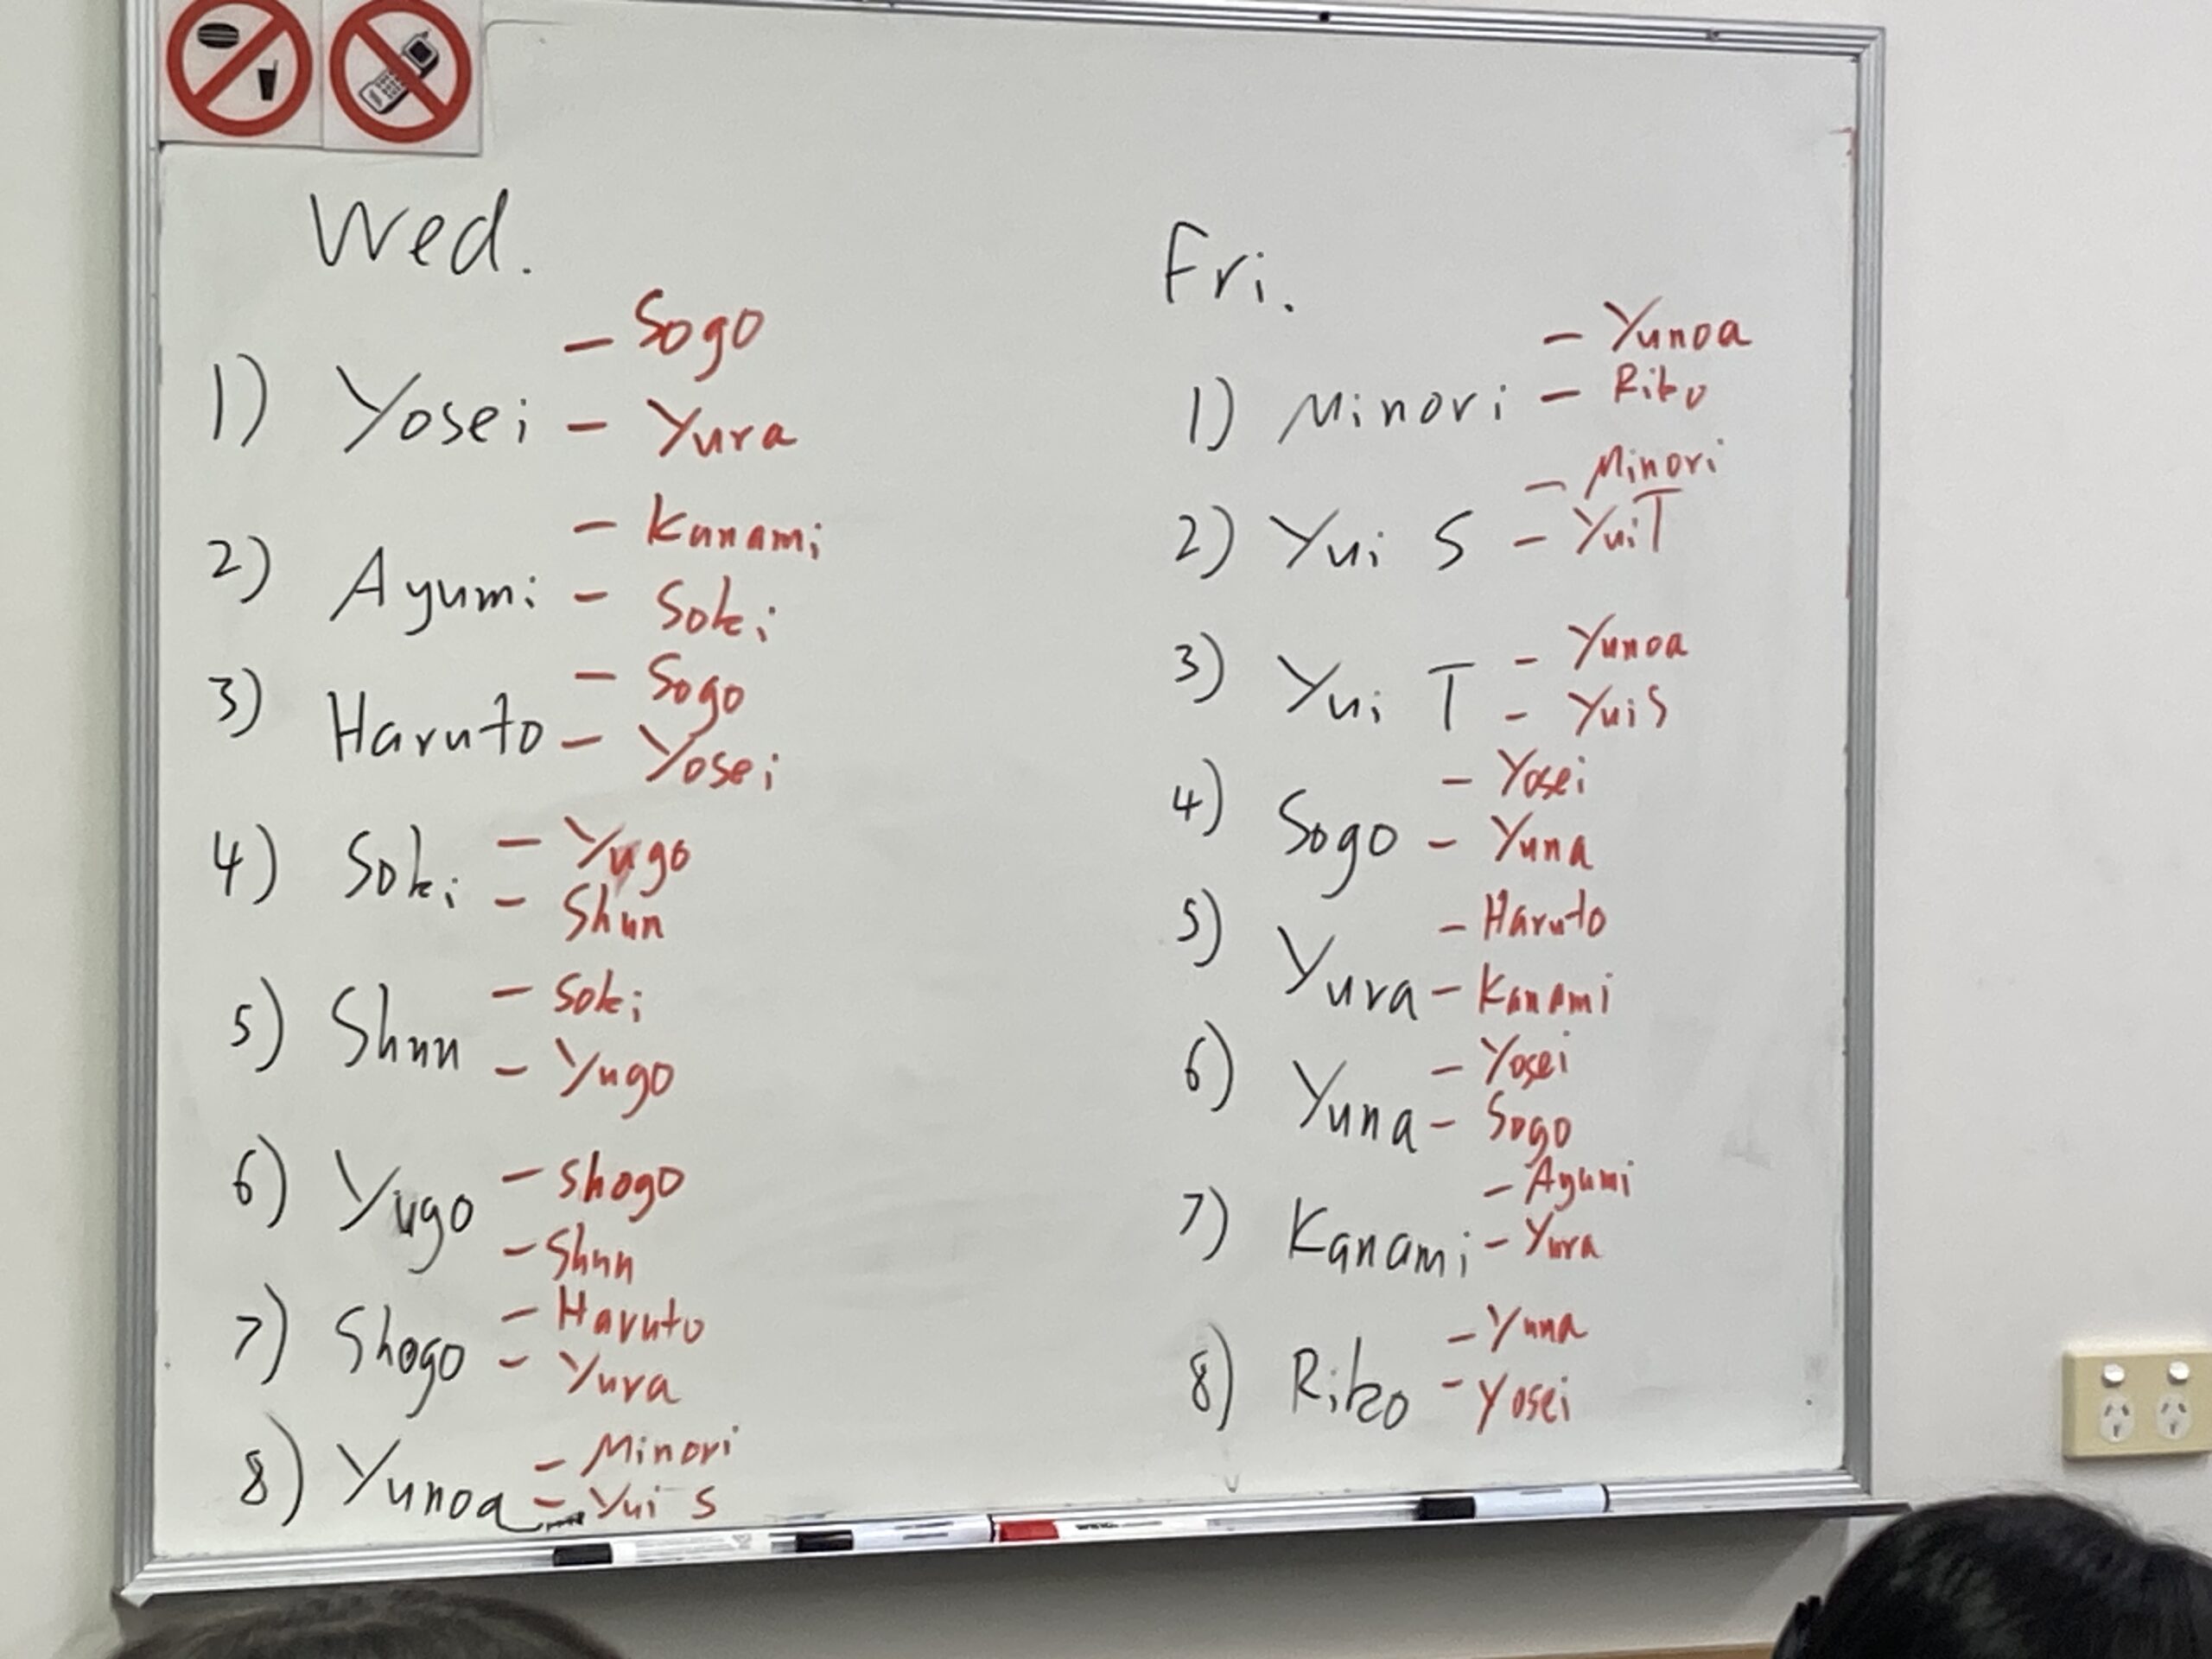 Wed.
- Sogo
1) Yosei - Yura
- Kanami
2) Ayumi - Soki
- Sogo
3) Haruto - Yosei
4) Soki - Yugo
- Shun
5) Shun - Soki
- Yugo
6) Yugo - Shogo
- Shun
7) Shogo - Haruto
- Yura
8) Yunoa - Minori
- Yui S
Fri.
- Yunoa
1) Minori - Riko
- Minori
2) Yui S - Yui T
3) Yui T - Yunoa
- Yui S
- Yosei
4) Sogo - Yuna
- Haruto
5) Yura - Kanami
- Yosei
6) Yuna - Sogo
- Ayumi
7) Kanami - Yura
- Yuna
8) Riko - Yosei